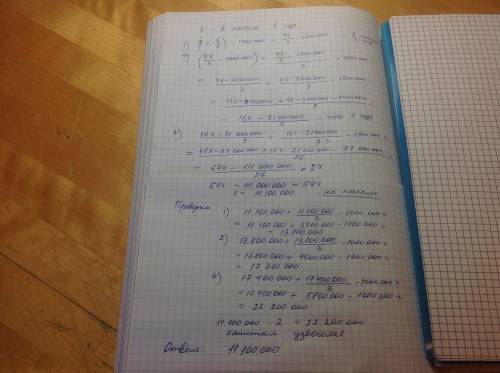 x - в начале
1) (x + x/3) - 1000000 = 4x/3 - 1000000
2) (4x/3 - 1000000) + (4x/3 - 1000000)/3 - 1000000 =
= (4x - 3000000)/3 + (4x - 3000000)/9 - 1000000 =
= (12x - 9000000 + 4x - 3000000 - 9000000)/9 =
= (16x - 21000000)/9 - через 2 года
3) (16x - 21000000)/9 + (16x - 21000000)/(9·3) - 1000000 =
= (48x - 63000000 + 16x - 21000000 - 27000000)/27
= (64x - 111000000)/27 = 2x
64x - 111000000 = 54x
x = 11.100.000 - на начало
Проверка
1) 11.100.000 + 11.100.000/3 - 1000.000 =
= 11.100.000 + 3700.000 - 1000.000 =
= 13.800.000
2) 13.800.000 + 13.800.000/3 - 1000.000 =
= 13.800.000 + 4600.000 - 1000.000 =
= 17.400.000
3) 17.400.000 + 17.400.000/3 - 1000.000 =
= 17.400.000 + 5800.000 - 1000.000 =
= 22.200.000
11.100.000 · 2 = 22.200.000
капитал удвоился
Ответ: 11100000